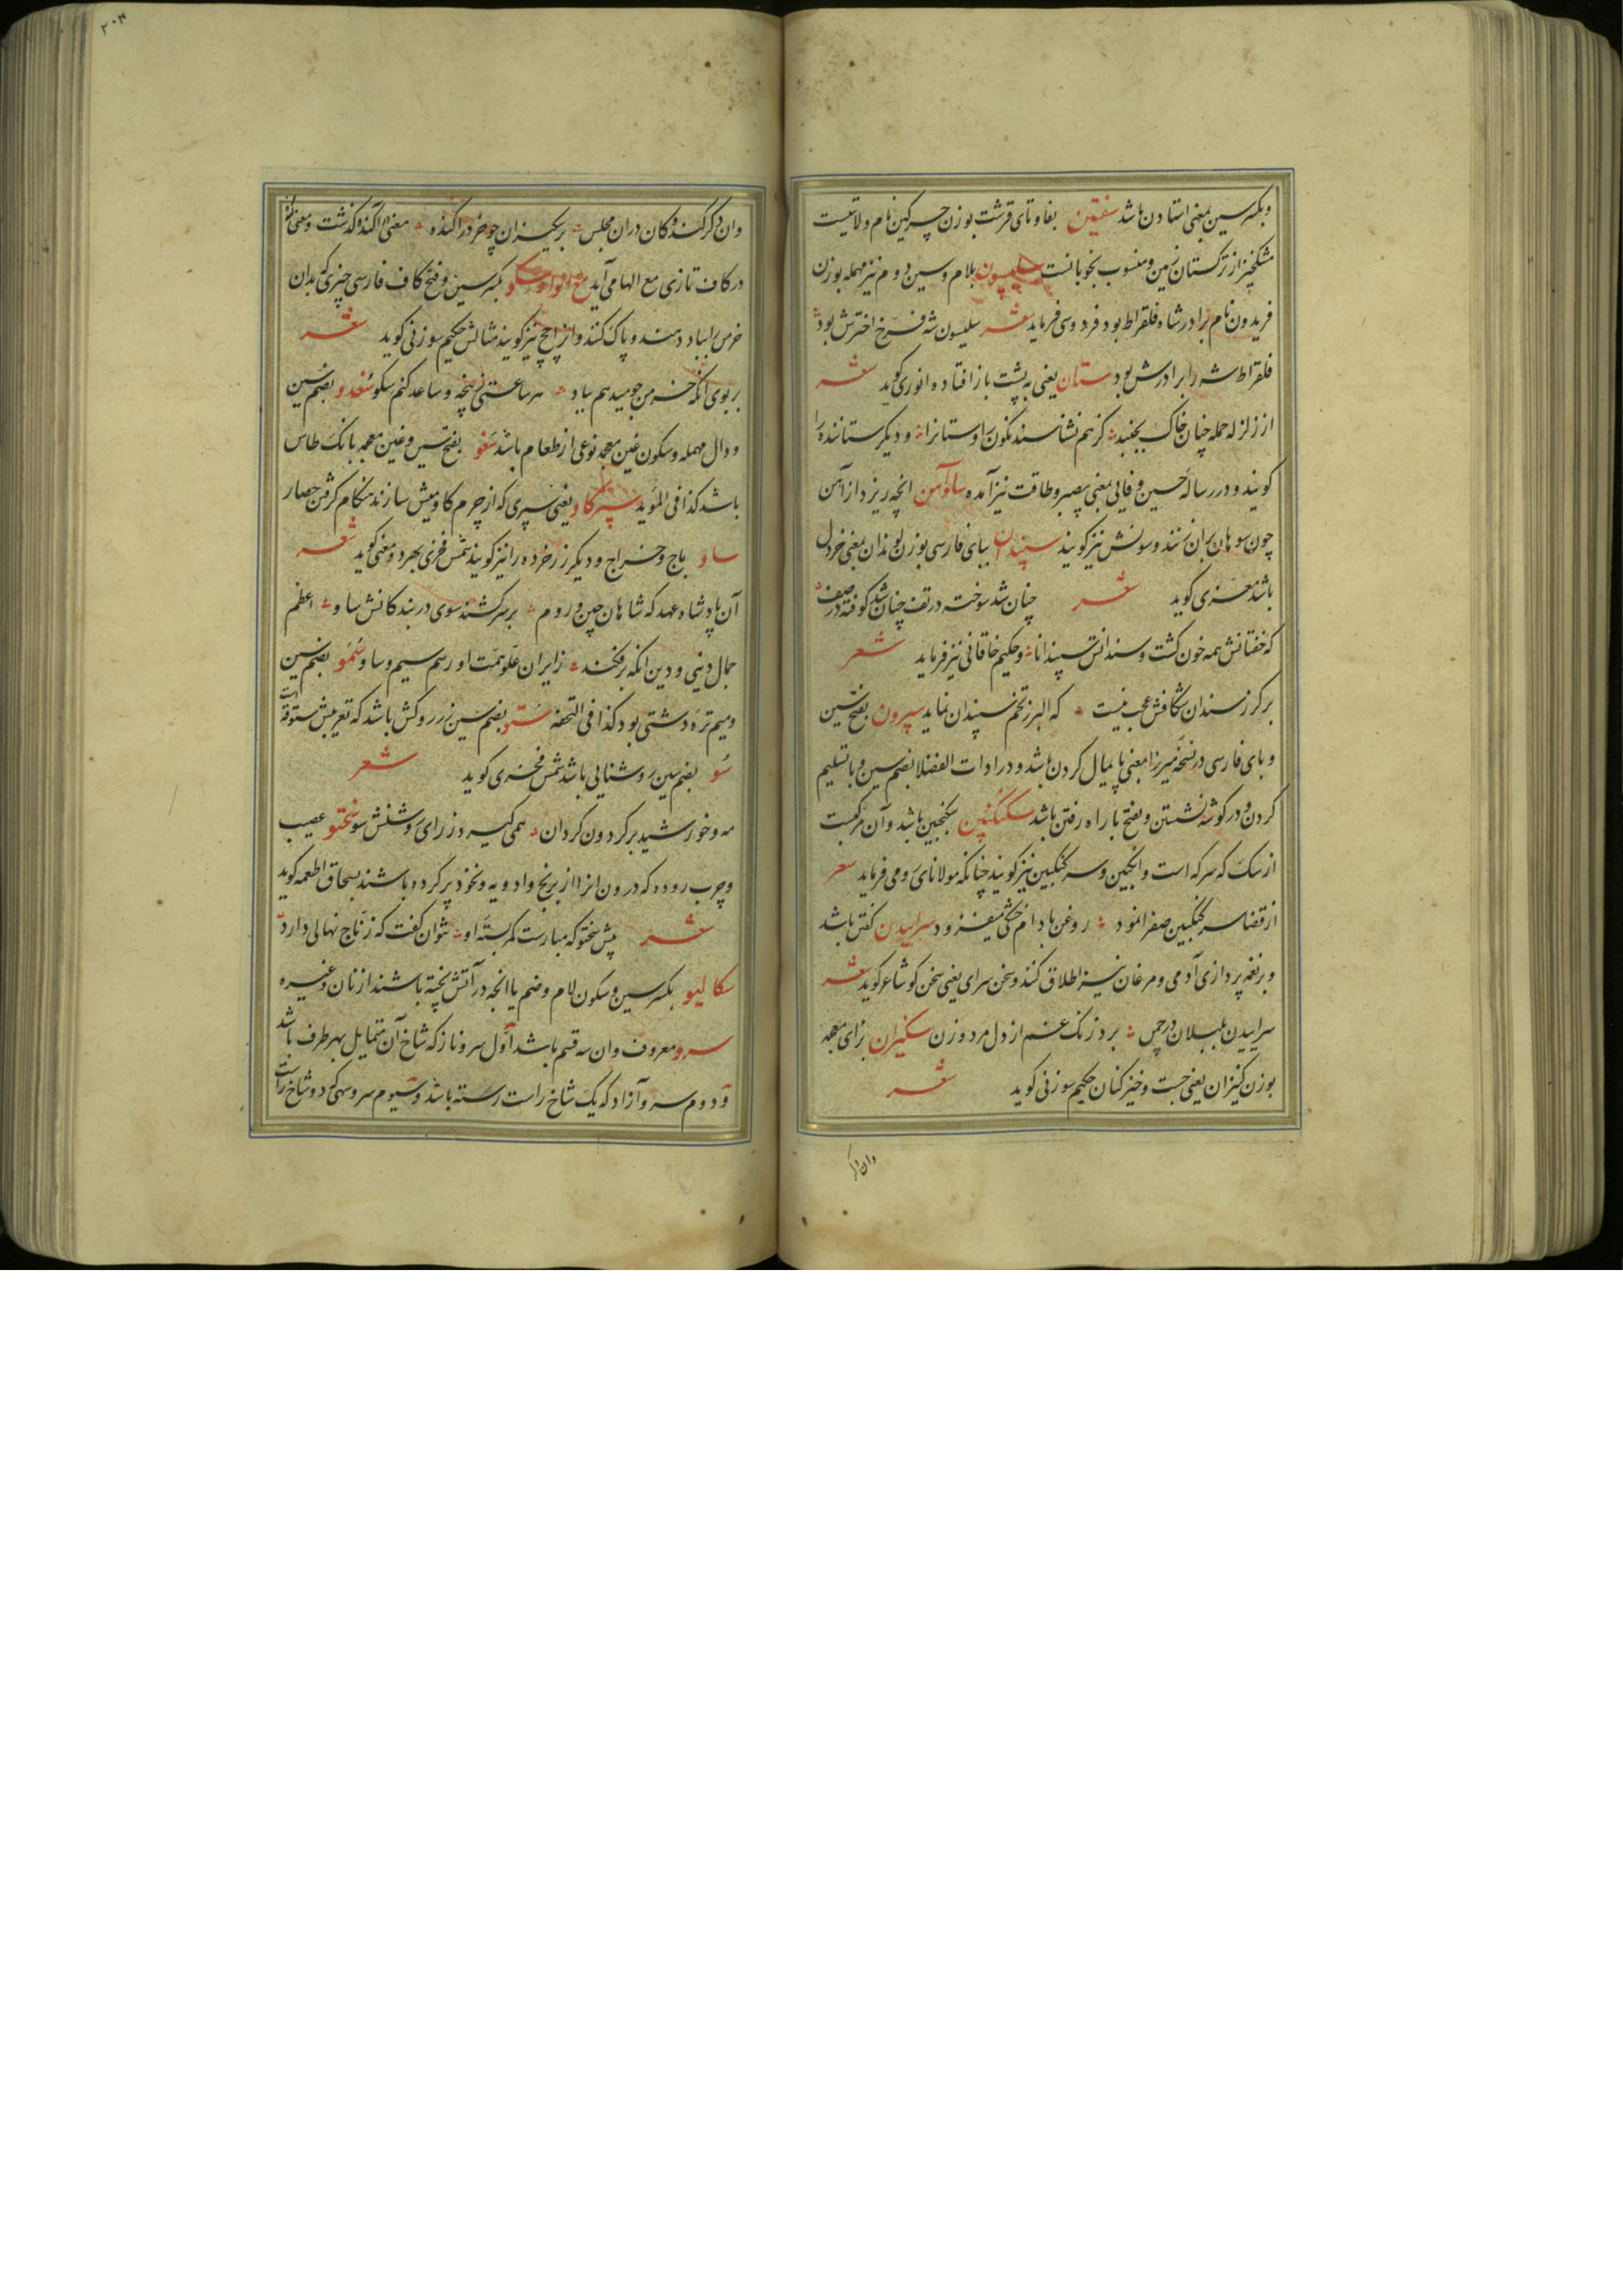 وبکسر سین بمعنی استادن باشد سفتین بفا و تای قرشت بوزن چرکین نام ولایتیست
مشکخیز از ترکستان زمین و منسوب بخوبانست سلیسون بلام و سین دوم نیز مهمله بوزن
فریدون نام برادر شاه فلقراط بود فردوسی فرماید شعر سلیسون شه فرخ اخترش بود
فلقراط شه را برادرش بود ستان یعنی به پشت باز افتاده انوری کوید شعر
از زلزله حمله چنان خاک بجنبد کز هم نشناسند نکون را و ستانرا و دیکر ستاننده را
کویند و در رساله حسین وفایی بمعنی بیصبر و طاقت نیز آمده ساوآهن انچه ریزد از آهن
چون سوهان بران زنند و سونش نیز کویند سپندان ببای فارسی بوزن لوندان بمعنی خردل
باشد معزی کوید شعر چنان شد سوخته در تف چنان شد کوفته در صف
که خفتانش همه خون کشت و سندانش سپندانا و حکیم خاقانی نیز فرماید شعر
بر کرز سندان شکافش عجب نیست که البرز تخم سپندان نماید سپرون بفتح سین
و بای فارسی در نسخه میرزا بمعنی پایمال کردن باشد و در ادات الفضلا بضم سین و با تسلیم
کردن و در کوشه نشستن و بفتح با راه رفتن باشد سکنکبین سکنجبین باشد و آن مرکبست
از سک که سرکه است و انجبین و سرکنکبین نیز کویند چنانکه مولانای رومی فرماید شعر
از قضا سرکنکبین صفرا نمود روغن بادام خشکی میفزود سراییدن کفتن باشد
و بر نغمه پردازی آدمی و مرغان نیز اطلاق کنند و سخن سرای یعنی سخن کو شاعر کوید شعر
سراییدن بلبلان در چمن برد زنک غم از دل مرد و زن سکیزان بزای معجمه
بوزن کنیزان یعنی جست و خیز کنان حکیم سوزنی کوید شعر
وان دکر
وان دکر کنده کان دران مجلس بر سکیزان چو خر در اکنده معنی اکنده کذشت و معنی
در کاف تازی مع الها می آید مع الواو سکو بکسر سین و فتح کاف فارسی چیزی که بدان
خرمن را بباد دهند و پاک کنند و انرا چج نیز کویند مثالش حکیم سوزنی کوید شعر
بر بوی انکه خرمن جو میدهم بباد هر ساعتی ز پنجه و ساعد کنم سکو سغدو بضم سین
و دال مهمله و سکون غین معجمه نوعی از طعام باشد سغو بفتح سین و غین معجمه بانک طاس
باشد کذا فی المؤید سپرکاو یعنی سپری که از چرم کاومیش سازند هنکام کرفتن حصار
ساو باج و خراج و دیکر زر خرده را نیز کویند شمس فخری بهر دو معنی کوید شعر
آن پادشاه عهد که شاهان چین و روم بر سر کشند سوی در بندکانش ساو اعظم
جمال دینی و دین انکه برفکند ز ایران علو همت او رسم سیم و ساو سمو بضم سین
و میم تره دشتی بود کذا فی التحفه ستو بضم سین زر روکش باشد که تعریبش ستوقه است
سو بضم سین روشنایی باشد شمس فخری کوید شعر
مه و خورشید بر کردون کردان همی کیرد ز رای روشنش سو سختو عصیب
و چرب روده که درون انرا از برنج و ادویه و نخود پر کرده باشند بسحاق اطعمه کوید
شعر پیش سختو که مبارست کمر بسته او نتوان کفت که زناج نهالی دارد
سکالیو بکسر سین و سکون لام و ضم یا انچه در آتش پخته باشند از نان و غیره
سرو معروف و ان سه قسم باشد اول سرو ناز که شاخ آن متمایل بهر طرف باشد
و دوم سرو آزاد که یک شاخ راست رسته باشد و سیوم سرو سهی که دو شاخ راست